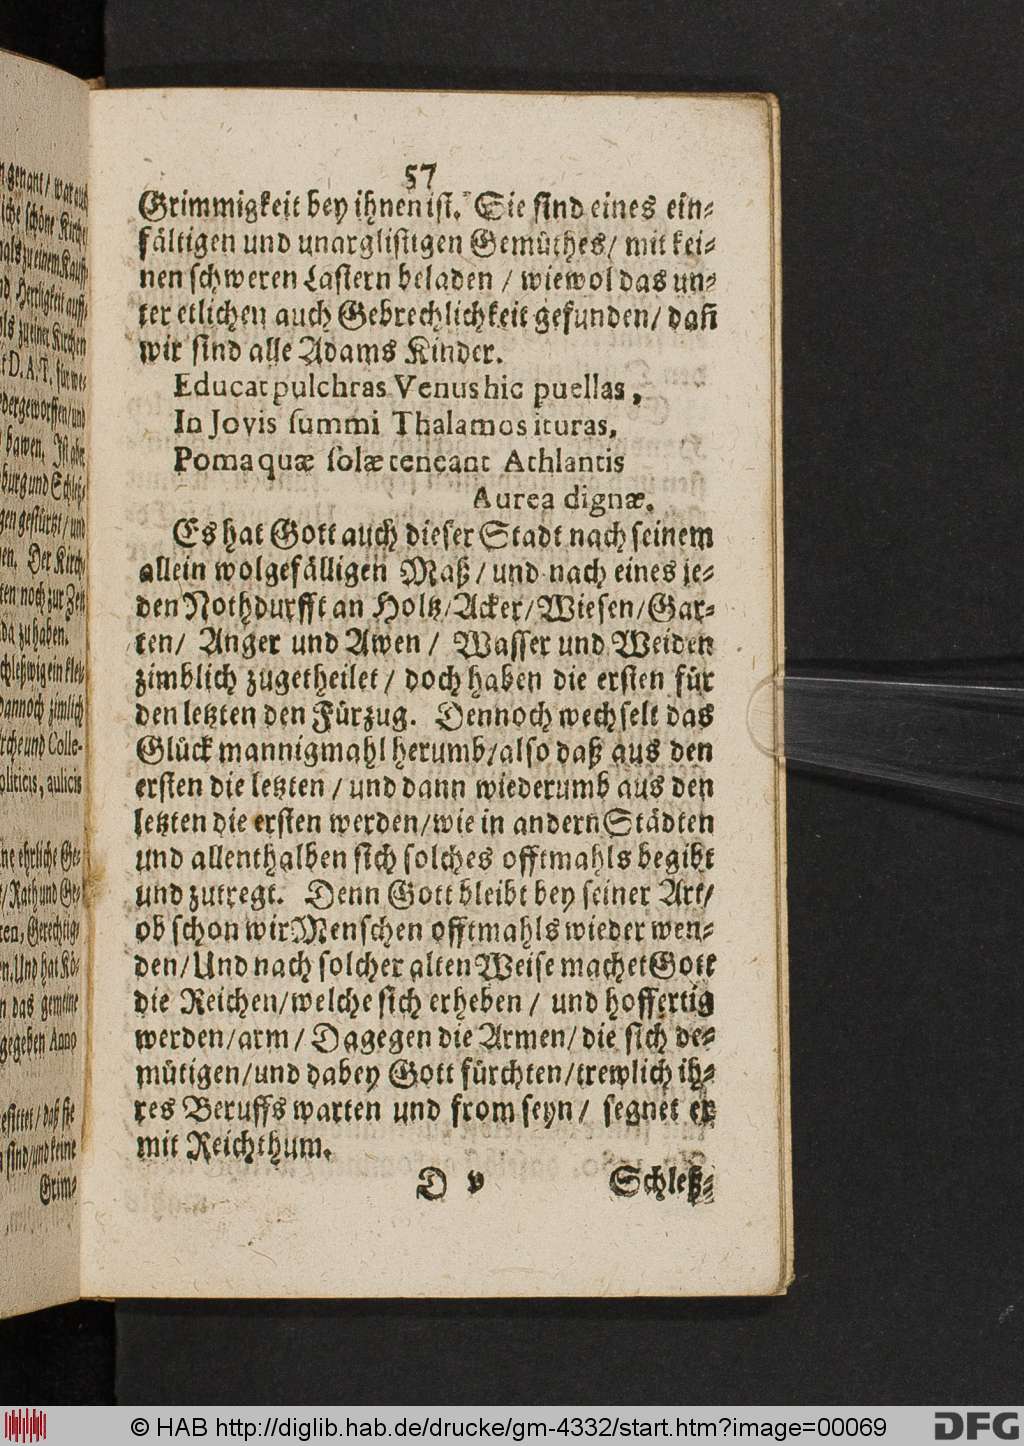 57
Grimmigkeit bey ihnen ist. Sie sind eines ein-
fältigen und unarglistigen Gemüthes/ mit kei-
nen schweren Lastern beladen / wiewol das un-
ter etlichen auch Gebrechlichkeit gefunden/ dañ
wir sind alle Adams Kinder.
Educat pulchras Venus hic puellas,
In Jovis summi Thalamos ituras,
Poma quæ solæ teneant Athlantis
Aurea dignæ.
Es hat Gott auch dieser Stadt nach seinem
allein wolgefälligen Maß / und nach eines je-
den Nothdurfft an Holtz/Acker/Wiesen/Gar-
ten/ Anger und Awen / Wasser und Weiden
zimblich zugetheilet / doch haben die ersten für
den letzten den Fürzug. Dennoch wechselt das
Glück mannigmahl herumb/also daß aus den
ersten die letzten / und dann wiederumb aus den
letzten die ersten werden/wie in andern Städten
und allenthalben sich solches offtmahls begibt
und zutregt. Denn Gott bleibt bey seiner Art/
ob schon wir Menschen offtmahls wieder wen-
den/Und nach solcher alten Weise machet Gott
die Reichen/welche sich erheben / und hoffertig
werden/arm / Dagegen die Armen/ die sich de-
mütigen/und dabey Gott fürchten/trewlich ih-
res Beruffs warten und from seyn / segnet er
mit Reichthum.
D v Schleß-
© HAB http://diglib.hab.de/drucke/gm-4332/start.htm?image=00069
DFG